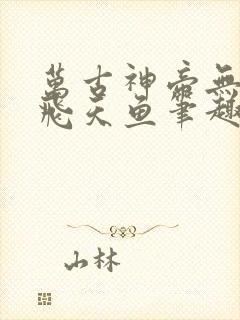 萬古神帝無
飛天魚筆趣
山林